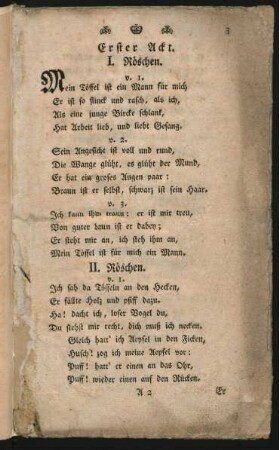 3
Erster Akt.
I. Röschen.
v. 1.
Mein Töffel ist ein Mann für mich
Er ist so flinck und rasch, als ich,
Als eine junge Bircke schlank,
Hat Arbeit lieb, und liebt Gesang.
v. 2.
Sein Angesicht ist voll und rund,
Die Wange glüht, es glüht der Mund,
Er hat ein groses Augen paar:
Braun ist er selbst, schwarz ist sein Haar.
v. 3.
Ich kann ihm traun: er ist mir treu,
Von guter Laun ist er dabey;
Er steht mir an, ich steh ihm an,
Mein Töffel ist für mich ein Mann.
II. Röschen.
v. 1.
Ich sah da Töffeln an den Hecken,
Er fällte Holz und pfiff dazu.
Ha! dacht ich, loser Vogel du,
Du stehst mir recht, dich muß ich necken.
Gleich hatt' ich Aepfel in den Ficken,
Husch! zog ich meine Aepfel vor:
Puff! hatt' er einen an das Ohr,
Puff! wieder einen auf den Rücken.
A 2 Er